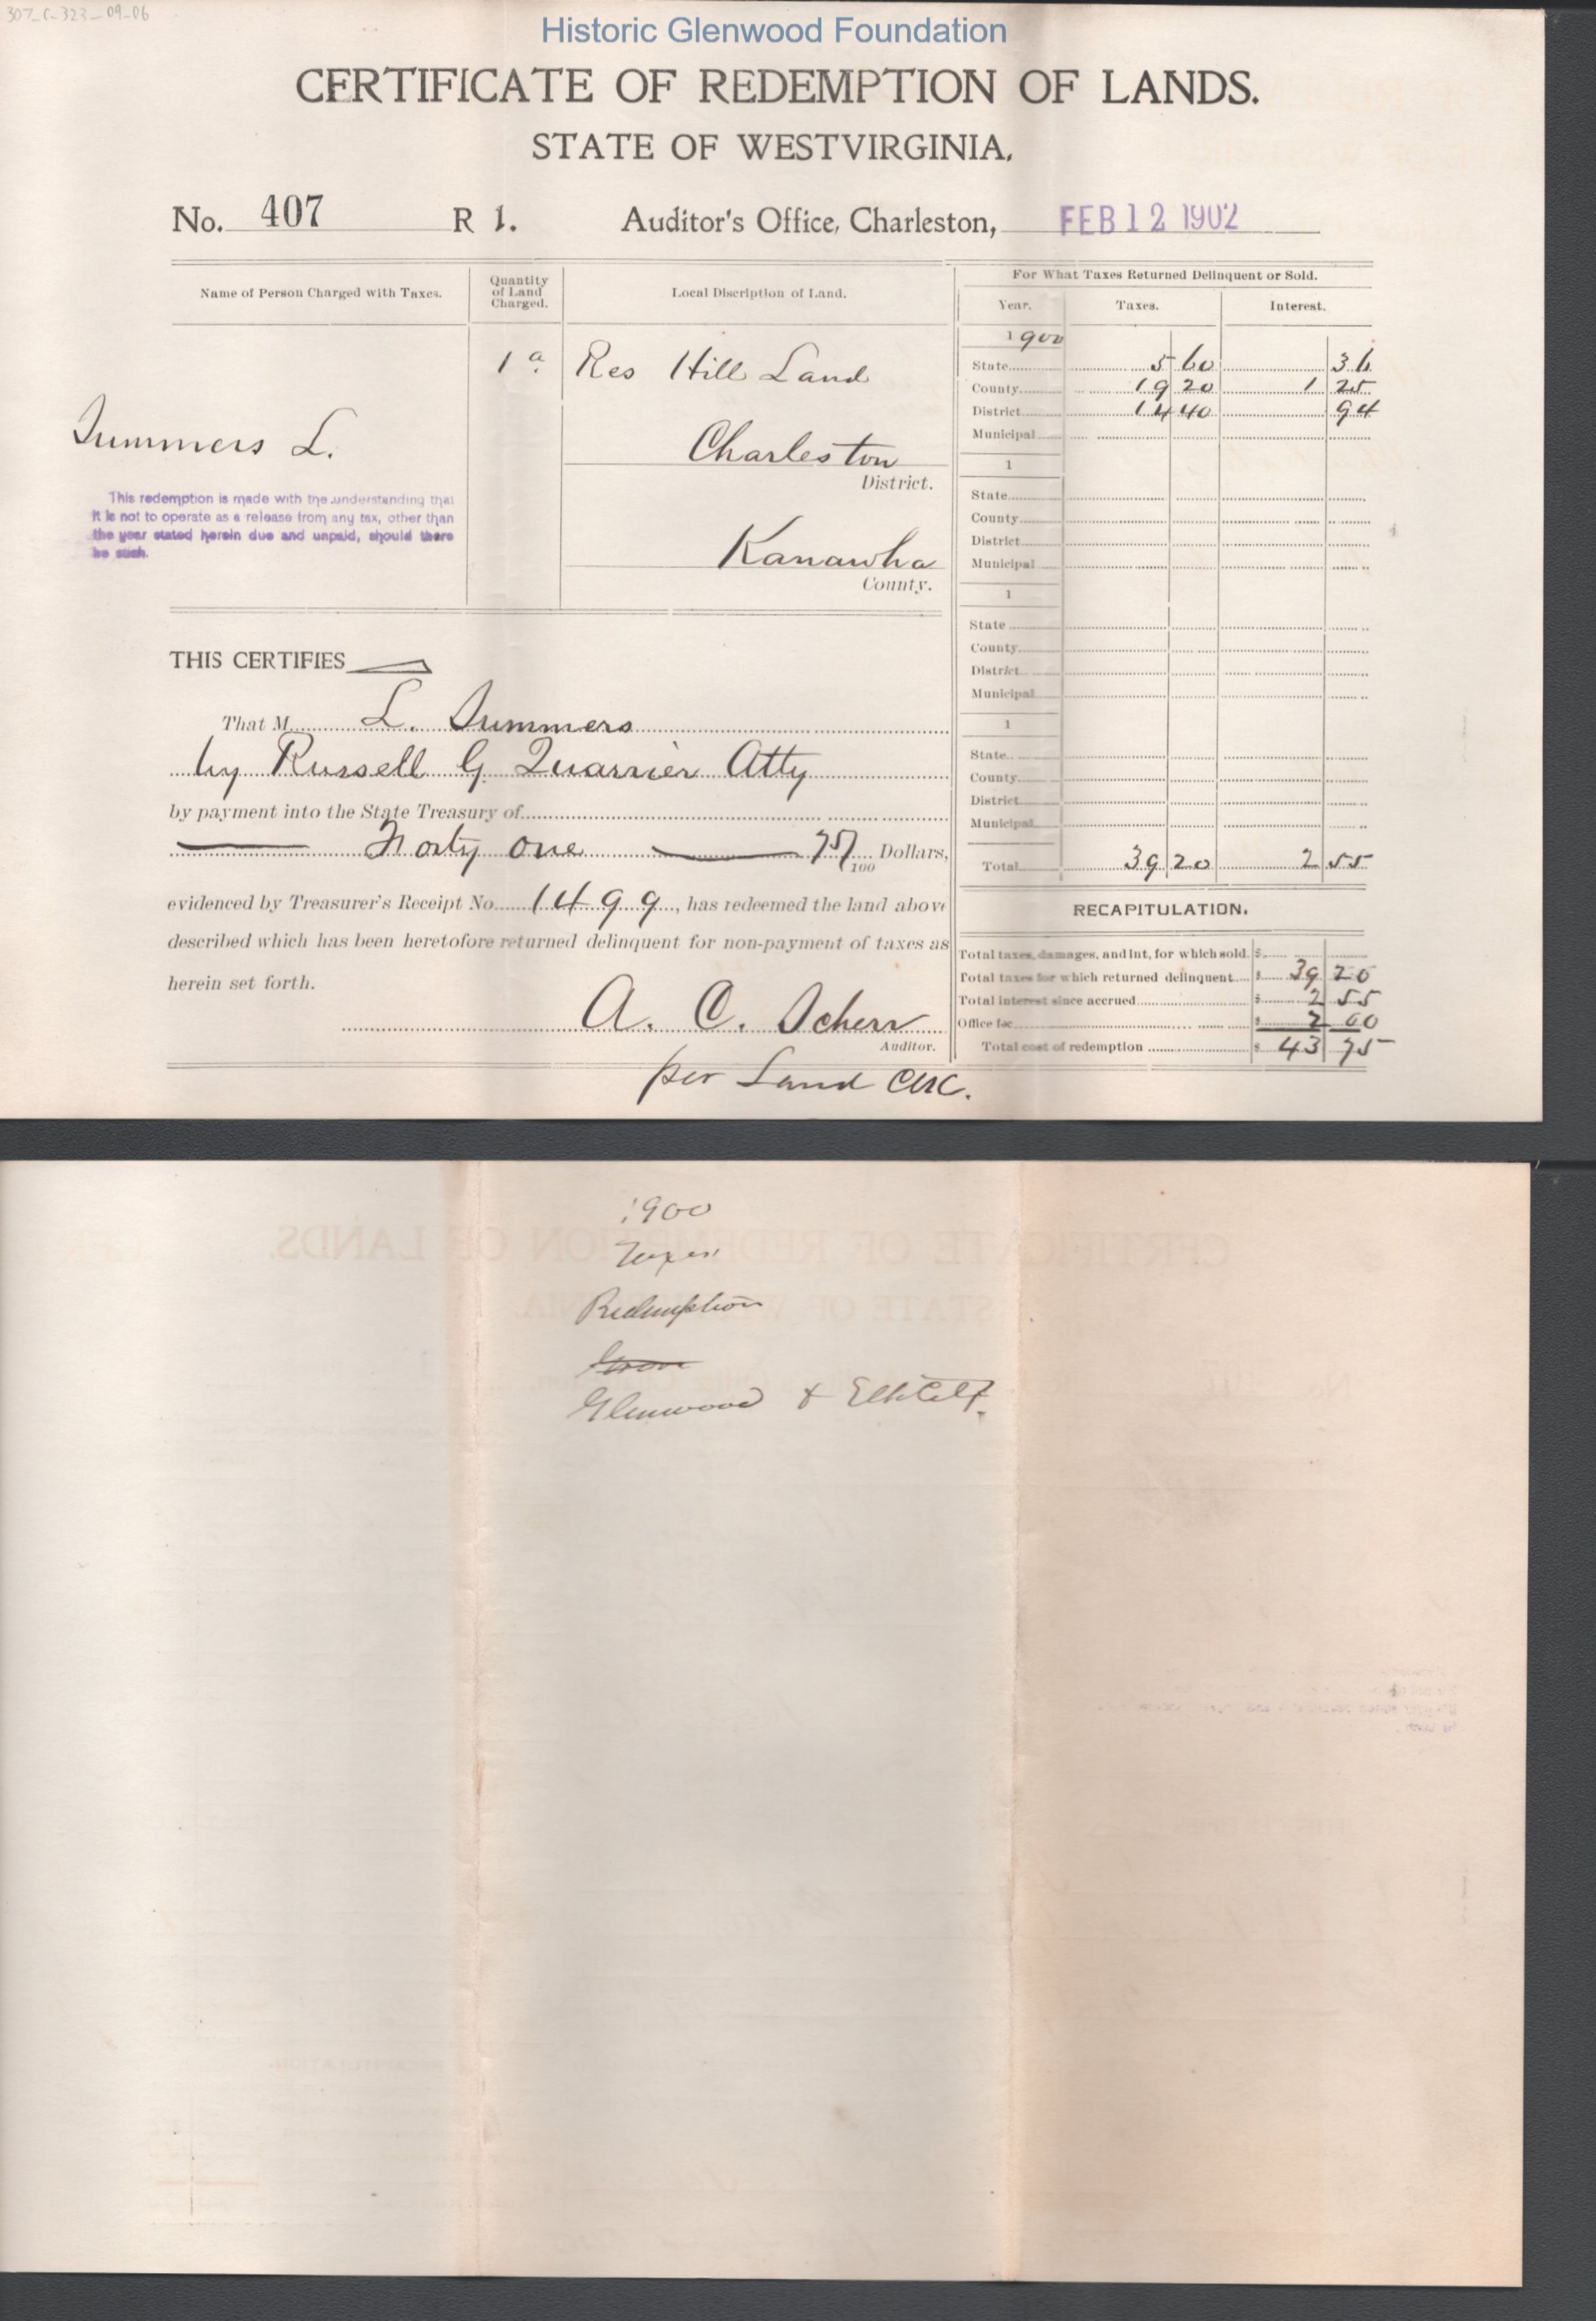 307_C-323_09-06
Historic Glenwood Foundation
CERTIFICATE OF REDEMPTION OF LANDS.
STATE OF WESTVIRGINIA.
No. 407 R 1. Auditor's Office, Charleston, FEB 12 1902
Name of Person Charged with Taxes.
Quantity of Land Charged.
Local Discription of Land.
Summers L.
This redemption is made with the understanding that
it is not to operate as a release from any tax, other than
the year stated herein due and unpaid, should there
be such.
1 a.
Res Hill Land
Charleston
District.
Kanawha
County.
For What Taxes Returned Delinquent or Sold.
Year. Taxes. Interest.
1900
State 5 60 36
County 19 20 1 25
District 14 40 94
Municipal
1
State
County
District
Municipal
1
State
County
District
Municipal
1
State
County
District
Municipal
Total 39 20 2 55
THIS CERTIFIES
That M L. Summers
by Russell G Quarrier Atty
by payment into the State Treasury of
Forty one 75/100 Dollars,
evidenced by Treasurer's Receipt No. 1499, has redeemed the land above
described which has been heretofore returned delinquent for non-payment of taxes as
herein set forth.
A. C. Scherr
Auditor.
per Land Clk.
RECAPITULATION.
Total taxes, damages, and int, for which sold. $
Total taxes for which returned delinquent $ 39 20
Total interest since accrued $ 2 55
Office fee $ 2 00
Total cost of redemption $ 43 75
1900
Taxes
Redemption
Glenwood &